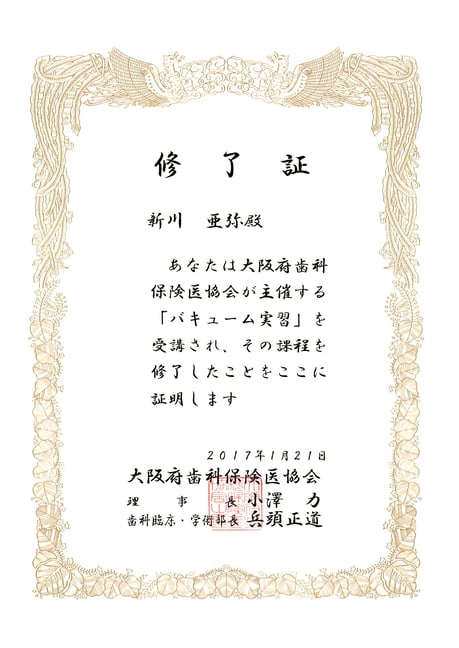 修了証
新川 亜弥殿
あなたは大阪府歯科
保険医協会が主催する
「バキューム実習」を
受講され、その課程を
修了したことをここに
証明します
2017年1月21日
大阪府歯科保険医協会
理事長 小澤 力
歯科臨床・学術部長 兵頭正道